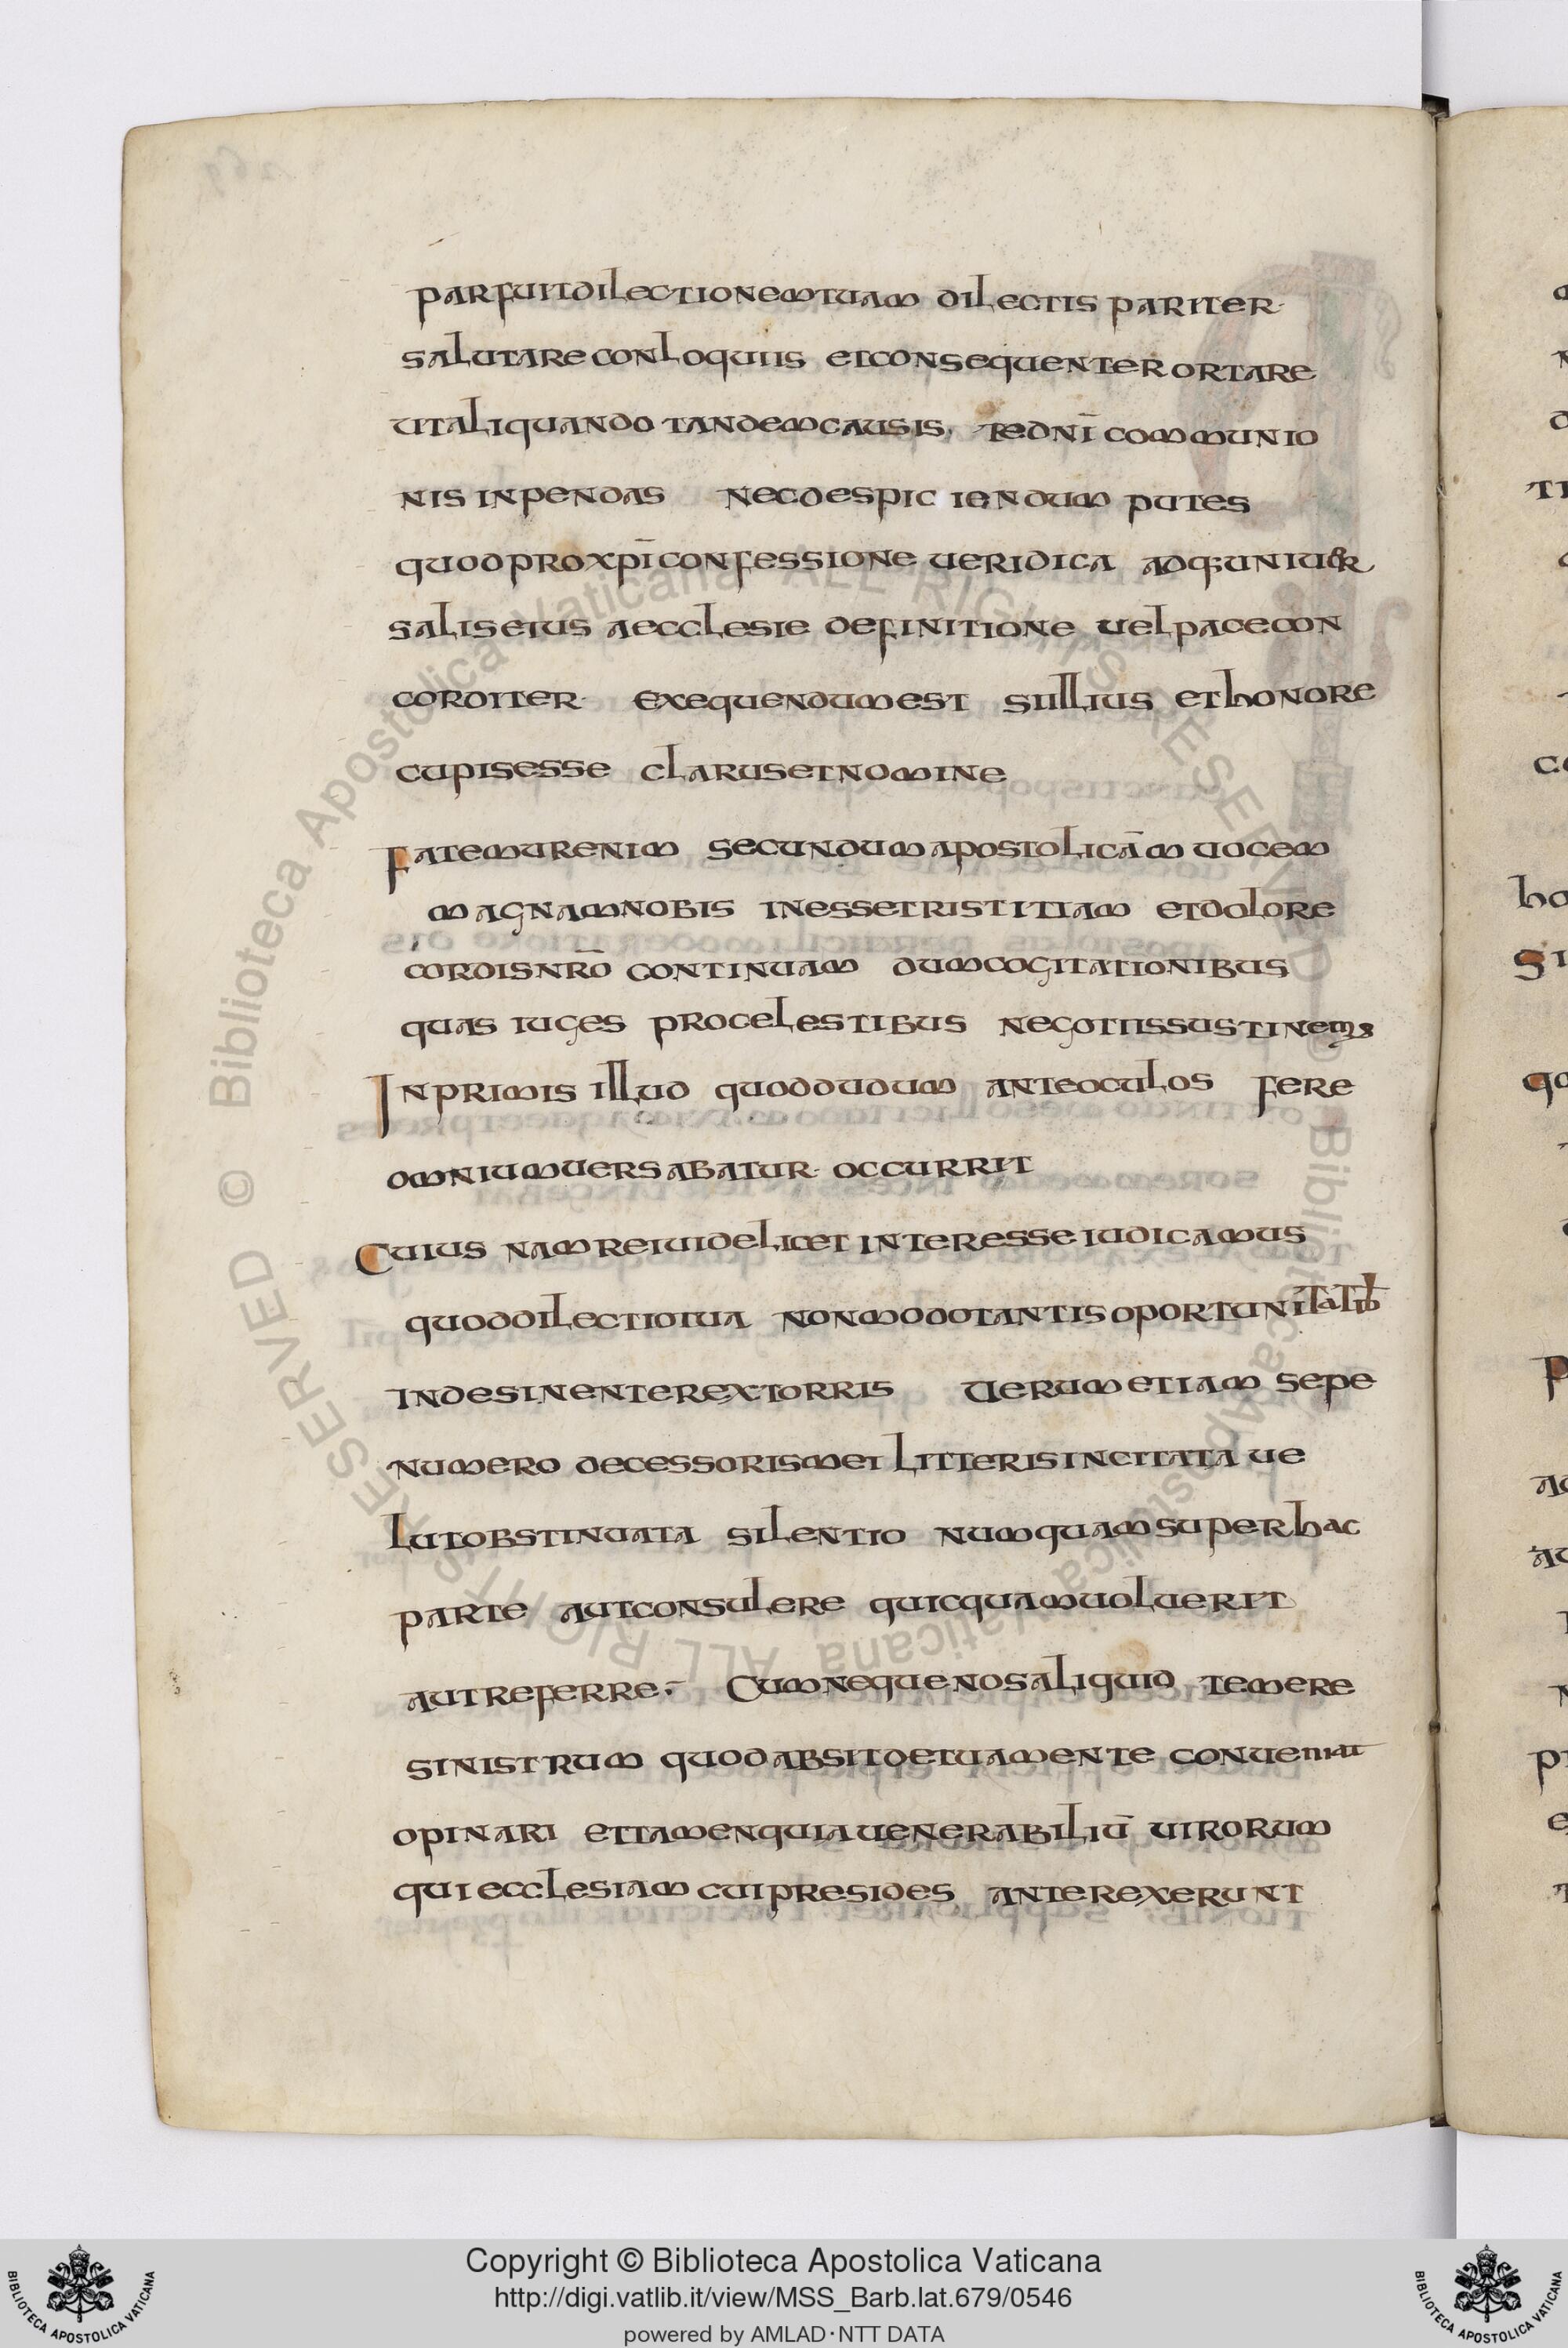 parfuitdilectionemtuam dilectis pariter·
salutareconloquiis etconsequenterortare
utaliquando tandemcausis, tednī communio
nis inpendas necdespiciendum putes
quodproxpīconfessione ueridica adq;uniuer
saliseius aecclesie definitione uelpacecon
corditer· exequendumest siillius ethonore
cupisesse clarusetnomine
Fatemurenim secundumapostolicām uocem
magnamnobis inessetristitiam etdolore
cordisnr̄o continuam dumcogitationibus
quas iuges procelestibus negotiissustinemus
Inprimis illud quoddudum anteoculos fere
omniumuersabatur· occurrit
Cuius namreiuidelicet interesseiudicamus
quoddilectiotua nonmodotantisoportunitatib
indesinenterextorris Uerumetiam sepe
numero decessorismei litterisincitata ue
lutobstinuata silentio numquamsuperhac
parte autconsulere quicquamuoluerit
autreferre; Cumnequenosaliquid temere
sinistrum quodabsitdetuamente conueniat
opinari ettamenquiauenerabiliū uirorum
quiecclesiam cuipresides anterexerunt
Copyright © Biblioteca Apostolica Vaticana
http://digi.vatlib.it/view/MSS_Barb.lat.679/0546
powered by AMLAD·NTT DATA